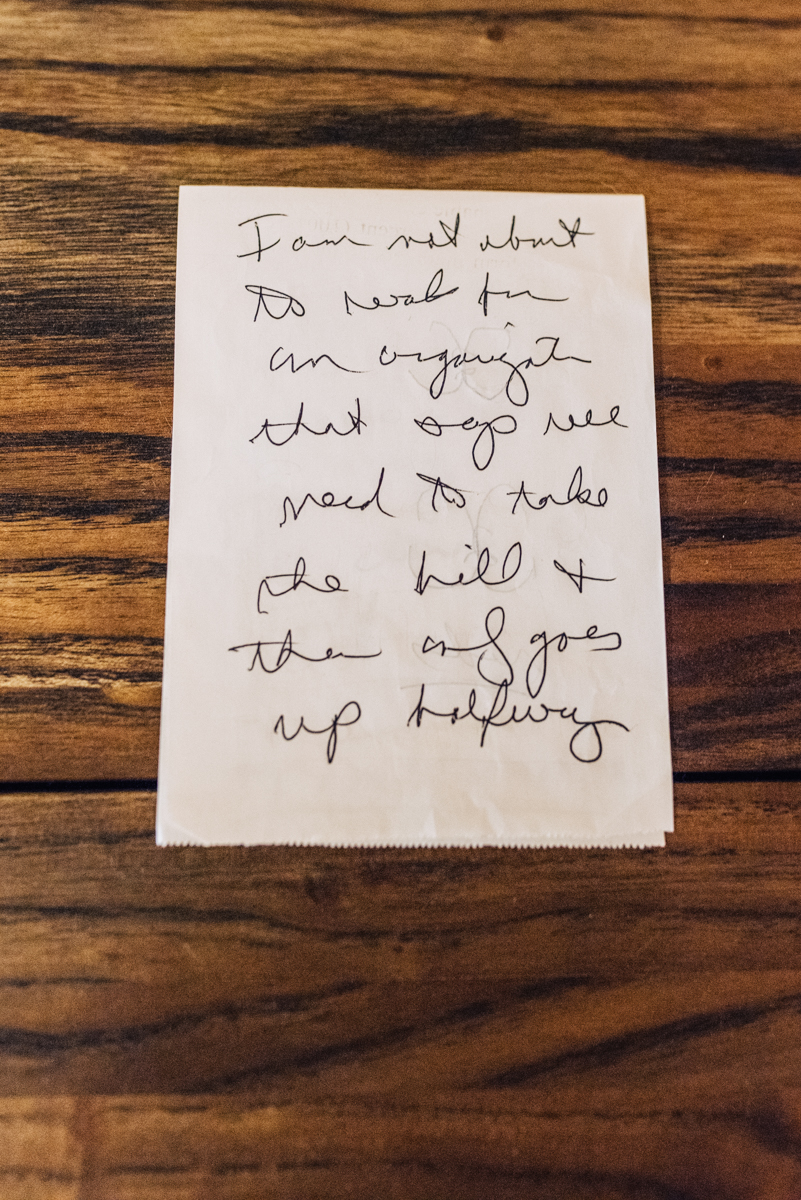 I am not about
to work for
an organization
that says we
need to take
the hill &
then only goes
up halfway